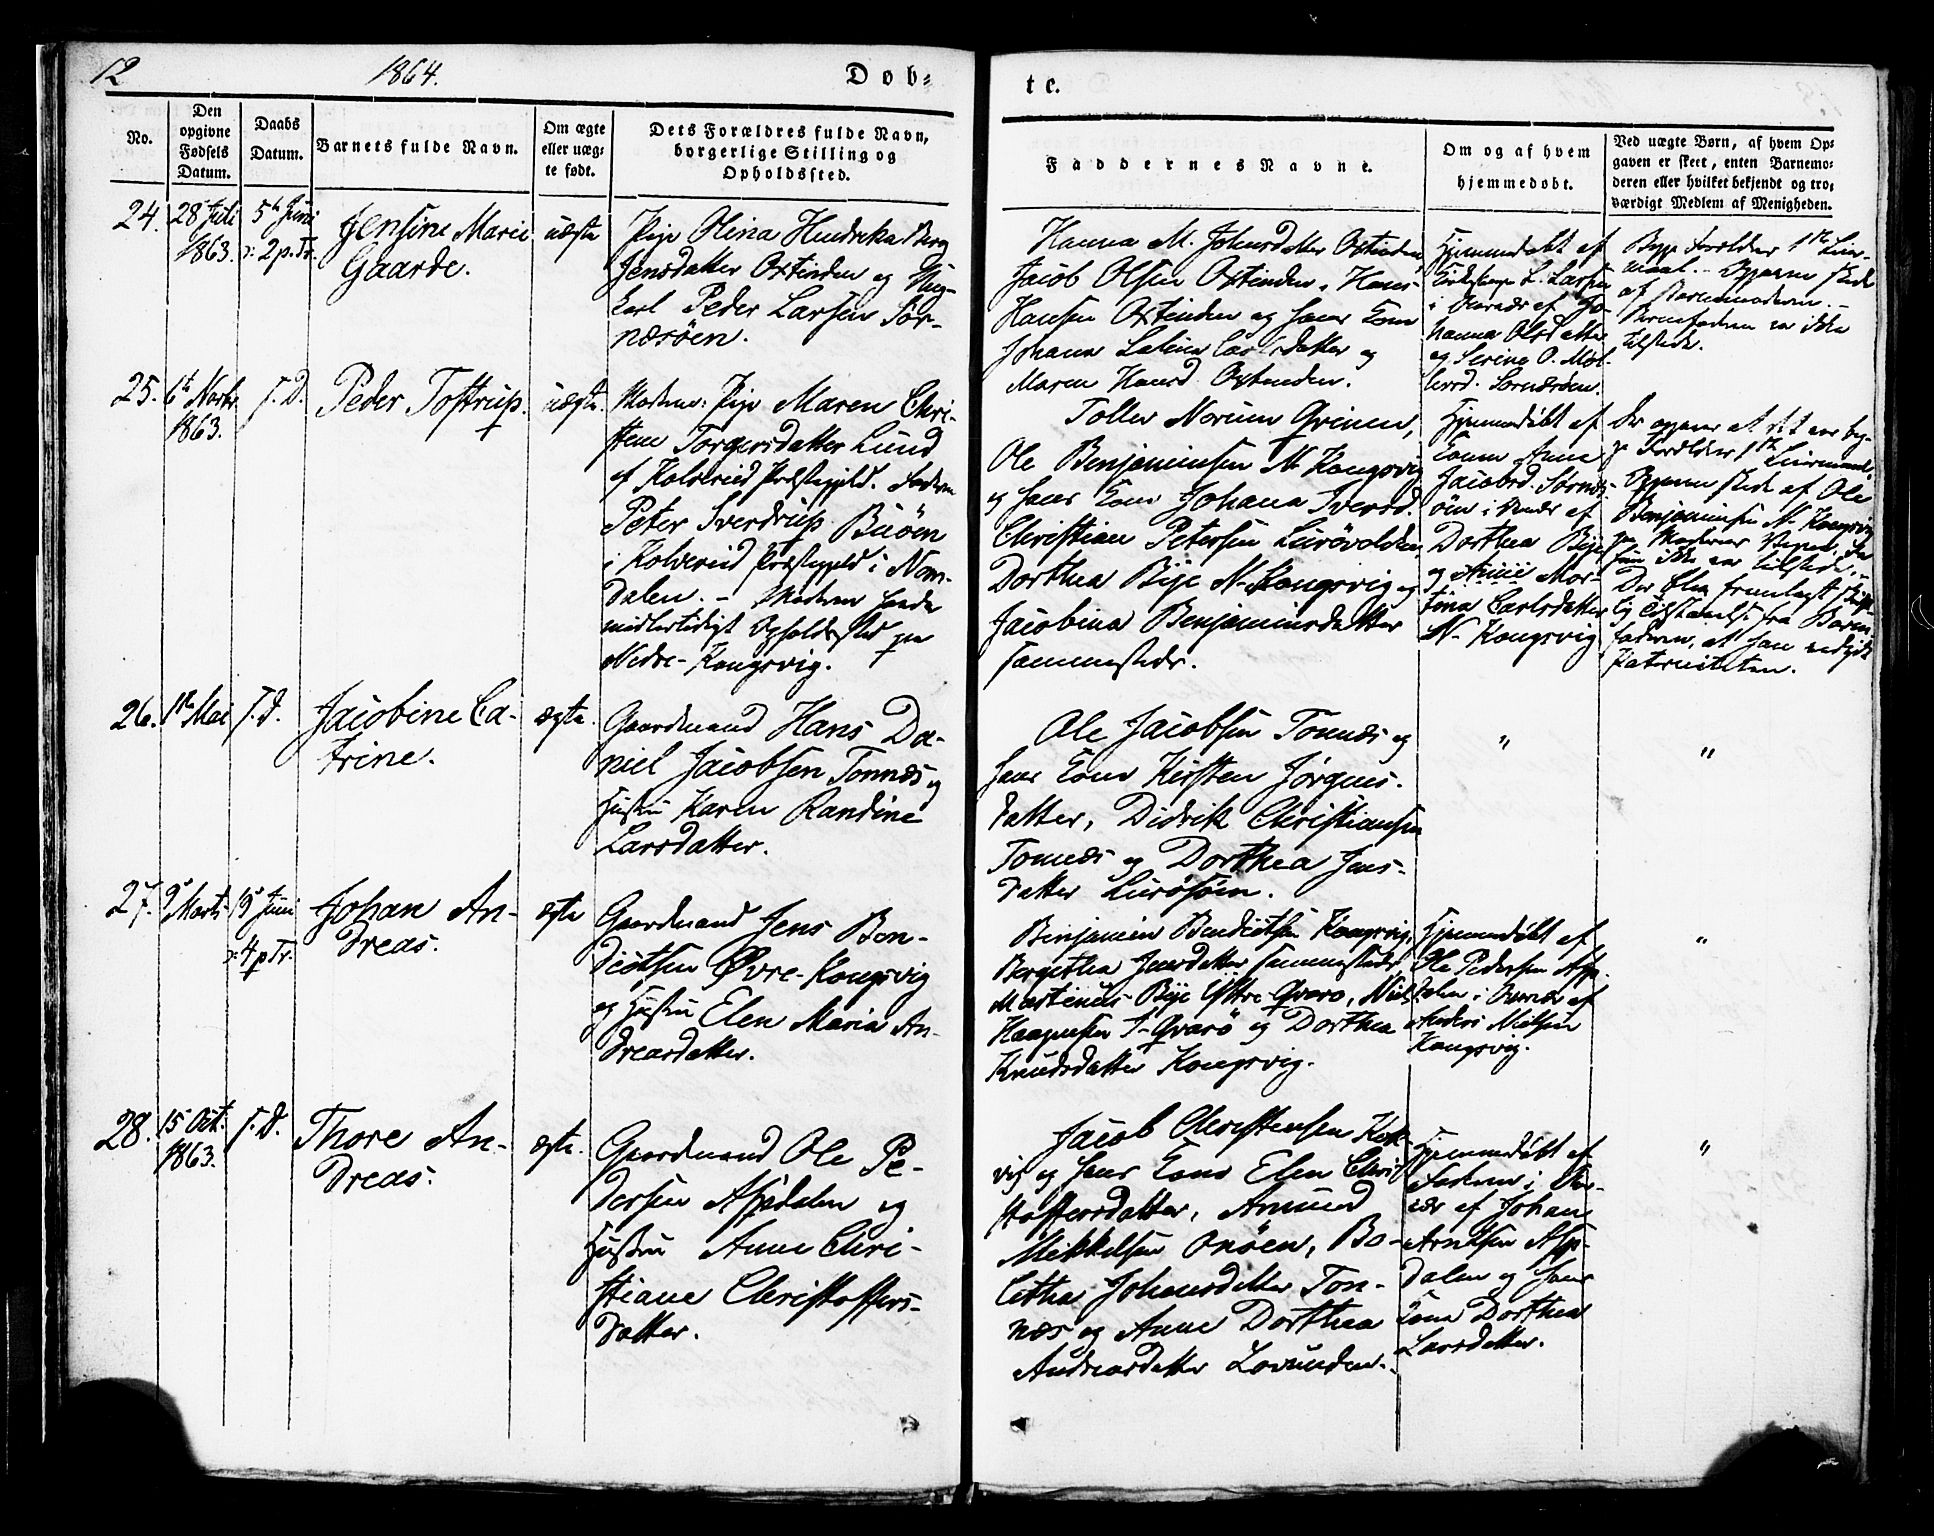 12 1864. Døb-
te.
No.
Den opgivne Fødsels Datum.
Daabs Datum.
Barnets fulde Navn.
Om ægte eller uægte født.
Dets Forældres fulde Navn, borgerlige Stilling og Opholdssted.
Faddernes Navne.
Om og af hvem hjemmedøbt.
Ved uægte Børn, af hvem Opgaven er skeet, enten Barnemoderen eller hvilket bekjendt og troværdigt Medlem af Menigheden.
24. 28 Juli 1863. 5te Juni ɔ: 2 p. Tr.
Jensine Marie
Gaarde.
uægte
Pige Olina Hendrika Berg
Jensdatter Oxtinden og Ung-
karl Peder Larsen Sør-
næsøen.
Hanna M. Johnsdatter Oxtinden,
Jacob Olsen Oxtinden, Hans
Hansen Oxtinden og hans Kone
Johana
Maren Hansd. Oxtinden.
Hjemmedøbt af
L. Larsen
i Overvær af Jo-
hanna Olsdatter
og Serine O. Møl-
Sornæsøen.
Begge Forældres 1ste Leier-
maal. - Opgaven skede
af Barnemoderen. -
Barnefaderen var ikke
tilstede.
25. 6te Novbr 1863. s. D.
Peder Tostrup.
uægte.
Moderen: Pige Maren Chri-
stine Torgersdatter Lund
af Kolvereid Præstegjeld. Faderen
Peter Sverdrup Buøen
i Kolvereid Præstegjeld i Nam-
dalen. - Moderen havde
midlertidigt Opholdssted paa
Nedre-Kongsvig.
Toller Norum Grinen,
Ole Benjaminsen N. Kongsvig
og hans Kone Johana Iversd.
Christian Petersen Lurøvolden
Dorthea Bije N. Kongsvig og
Jacobina Benjaminsdatter
sammesteds.
Hjemmedøbt af
Konen Anne
Jacobsd. Sornæs-
øen i Overvær af
Dorthea Bije
og Anne Mar-
tina Carlsdatter
N. Kongsvig
Der opgaves at det var beg-
ge Forældres 1ste Leiermaal.
Opgaven skede af Ole
Benjaminsen N. Kongsvig
paa Moderens Vegne,
som ikke var tilstede. -
Der blev fremlagt Skrift-
lig Tilstaaelse fra Barne-
faderen, at han vedgik
Paterniteten.
26. 1ste Mai s. D.
Jacobine Ca-
trine.
ægte.
Gaardmand Hans Da-
niel Jacobsen Tonnæs og
Hustru Karen Randine
Larsdatter.
Ole Jacobsen Tonnæs og
hans Kone Kirsten Jørgens-
datter, Didrik Christiansen
Tonnæs og Dorthea Jens-
datter Lurøsøen.
"
"
27. 9de Marts 19de Juni ɔ: 4 p Tr.
Johan An-
dreas.
ægte
Gaardmand Jens Ben-
dictsen Øvre-Kongsvig
og Hustru Elen Maria An-
dreasdatter.
Benjamin Bendictsen Kongsvig,
Bergitha Jensdatter sammesteds,
Martinus Bije Yttre-Qvarø, Niels
Haagensen I-Qvarø og Dorthea
Knudsdatter Kongsvig.
Hjemmedøbt af
Ole Pedersen Asp-
dalen i Overvær af
Anders Nielsen
Kongsvig.
"
28. 15 Oct. 1863. s. D.
Thore An-
dreas.
ægte.
Gaardmand Ole Pe-
dersen Aspdalen og
Hustru Anne Chri-
stiane Christoffers-
datter.
Jacob Christensen Kok-
vig og hans Kone Elen Chris-
stoffersdatter, Amund
Mikkelsen Onøen, Bo-
letha Johansdatter Ton-
næs og Anne Dorthea
Andreasdatter Lovunden.
Hjemmedøbt af
Faderen i Over-
vær af Johan
Arntsen Asp-
dalen og hans
Kone Dorthea
Larsdatter.
"